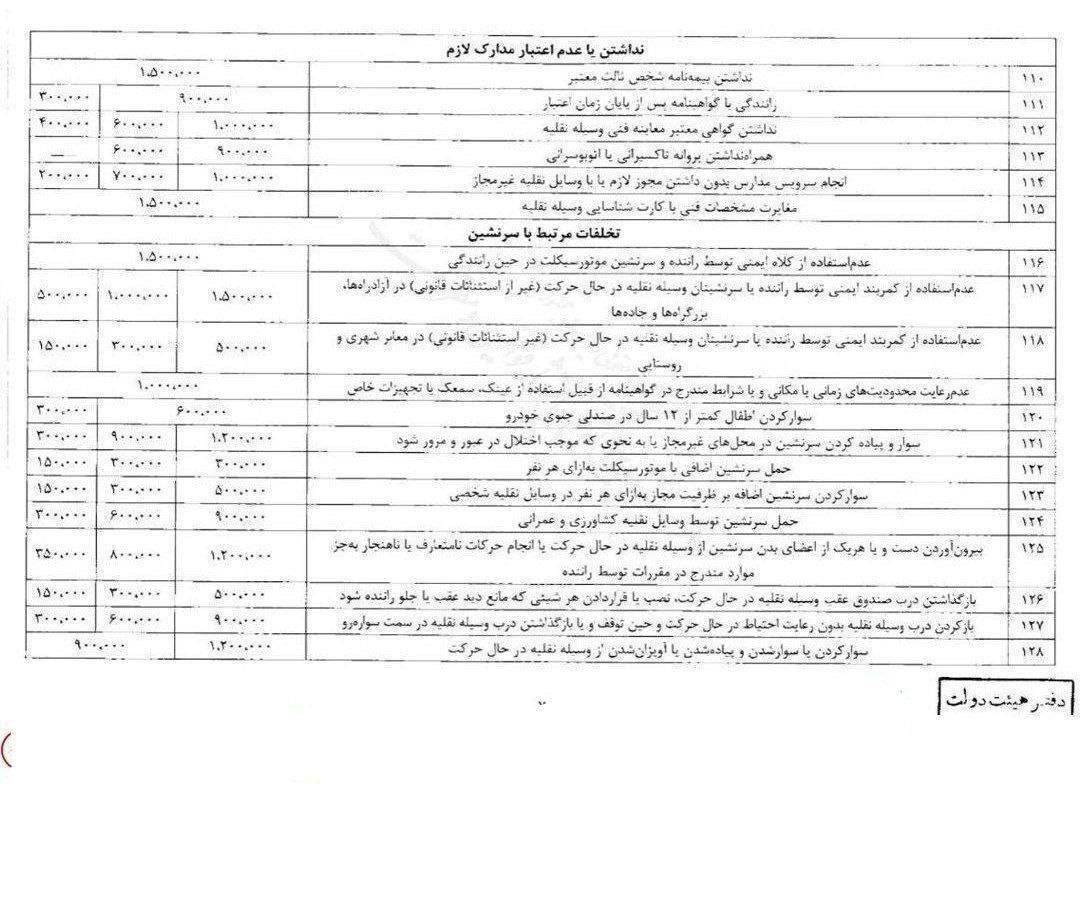 نداشتن یا عدم اعتبار مدارک لازم
۱۱۰ نداشتن بیمه‌نامه شخص ثالث معتبر ۱.۵۰۰.۰۰۰
۱۱۱ رانندگی با گواهینامه پس از پایان زمان اعتبار ۹۰۰.۰۰۰ ۳۰۰.۰۰۰
۱۱۲ نداشتن گواهی معتبر معاینه فنی وسیله نقلیه ۱.۰۰۰.۰۰۰ ۶۰۰.۰۰۰ ۴۰۰.۰۰۰
۱۱۳ همراه‌نداشتن پروانه تاکسیرانی یا اتوبوسرانی ۹۰۰.۰۰۰ ۶۰۰.۰۰۰ —
۱۱۴ انجام سرویس مدارس بدون داشتن مجوز لازم یا با وسایل نقلیه غیرمجاز ۱.۰۰۰.۰۰۰ ۷۰۰.۰۰۰ ۲۰۰.۰۰۰
۱۱۵ مغایرت مشخصات فنی با کارت شناسایی وسیله نقلیه ۱.۵۰۰.۰۰۰
تخلفات مرتبط با سرنشین
۱۱۶ عدم‌استفاده از کلاه ایمنی توسط راننده و سرنشین موتورسیکلت در حین رانندگی ۱.۵۰۰.۰۰۰
۱۱۷ عدم‌استفاده از کمربند ایمنی توسط راننده یا سرنشینان وسیله نقلیه در حال حرکت (غیر از استثنائات قانونی) در آزادراه‌ها، ۱.۵۰۰.۰۰۰ ۱.۰۰۰.۰۰۰ ۵۰۰.۰۰۰
بزرگراه‌ها و جاده‌ها
۱۱۸ عدم‌استفاده از کمربند ایمنی توسط راننده یا سرنشینان وسیله نقلیه در حال حرکت (غیر استثنائات قانونی) در معابر شهری و ۵۰۰.۰۰۰ ۳۰۰.۰۰۰ ۱۵۰.۰۰۰
روستایی
۱۱۹ عدم‌رعایت محدودیت‌های زمانی یا مکانی و یا شرایط مندرج در گواهینامه از قبیل استفاده از عینک، سمعک یا تجهیزات خاص ۱.۰۰۰.۰۰۰
۱۲۰ سوارکردن اطفال کمتر از ۱۲ سال در صندلی جلوی خودرو ۶۰۰.۰۰۰ ۳۰۰.۰۰۰
۱۲۱ سوار و پیاده کردن سرنشین در محل‌های غیرمجاز یا به نحوی که موجب اختلال در عبور و مرور شود ۱.۲۰۰.۰۰۰ ۹۰۰.۰۰۰ ۳۰۰.۰۰۰
۱۲۲ حمل سرنشین اضافی با موتورسیکلت به‌ازای هر نفر ۳۰۰.۰۰۰ ۳۰۰.۰۰۰ ۱۵۰.۰۰۰
۱۲۳ سوارکردن سرنشین اضافه بر ظرفیت مجاز به‌ازای هر نفر در وسایل نقلیه شخصی ۵۰۰.۰۰۰ ۳۰۰.۰۰۰ ۱۵۰.۰۰۰
۱۲۴ حمل سرنشین توسط وسایل نقلیه کشاورزی و عمرانی ۹۰۰.۰۰۰ ۶۰۰.۰۰۰ ۳۰۰.۰۰۰
۱۲۵ بیرون‌آوردن دست و یا هریک از اعضای بدن سرنشین از وسیله نقلیه در حال حرکت یا انجام حرکات نامتعارف یا ناهنجار به‌جز ۱.۲۰۰.۰۰۰ ۸۰۰.۰۰۰ ۳۵۰.۰۰۰
موارد مندرج در مقررات توسط راننده
۱۲۶ بازگذاشتن درب صندوق عقب وسیله نقلیه در حال حرکت، نصب یا قراردادن هر شیئی که مانع دید عقب یا جلو راننده شود ۵۰۰.۰۰۰ ۳۰۰.۰۰۰ ۱۵۰.۰۰۰
۱۲۷ بازکردن درب وسیله نقلیه بدون رعایت احتیاط در حال حرکت و حین توقف و یا بازگذاشتن درب وسیله نقلیه در سمت سواره‌رو ۹۰۰.۰۰۰ ۶۰۰.۰۰۰ ۳۰۰.۰۰۰
۱۲۸ سوارکردن یا سوارشدن و پیاده‌شدن یا آویزان‌شدن از وسیله نقلیه در حال حرکت ۱.۲۰۰.۰۰۰ ۹۰۰.۰۰۰
۷
دفتر هیئت دولت